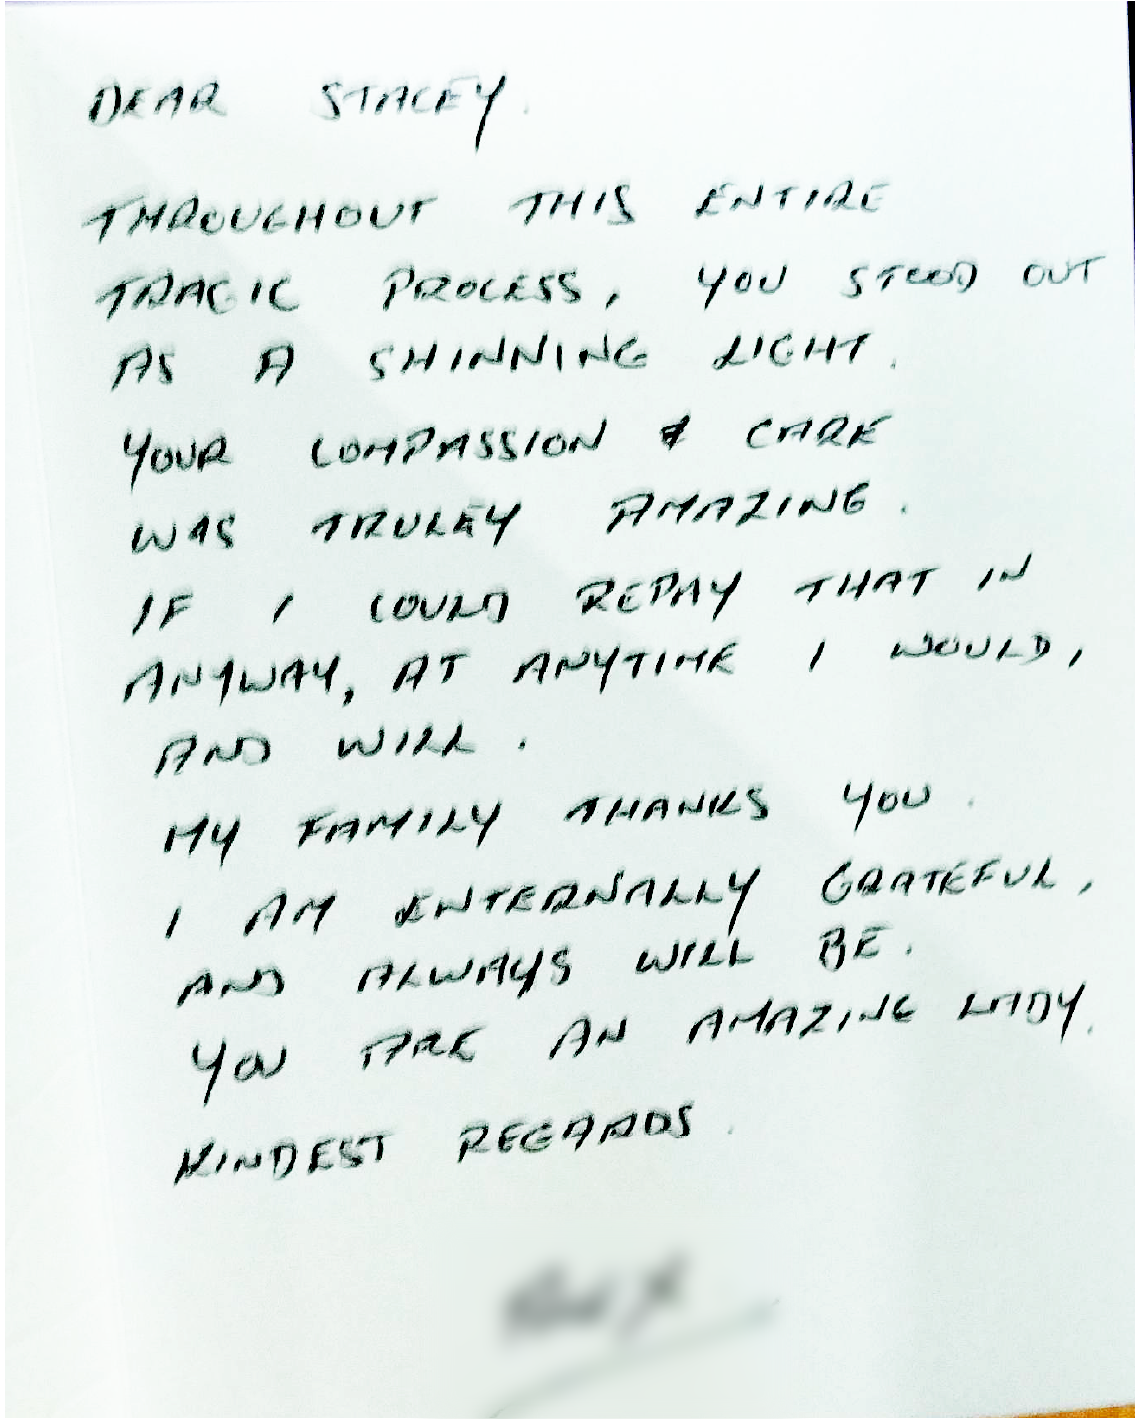 DEAR STACEY.
THROUGHOUT THIS ENTIRE
TRAGIC PROCESS, YOU STOOD OUT
AS A SHINNING LIGHT.
YOUR COMPASSION & CARE
WAS TRULEY AMAZING.
IF I COULD REPAY THAT IN
ANYWAY, AT ANYTIME I WOULD,
AND WILL.
MY FAMILY THANKS YOU.
I AM ENTERNALLY GRATEFUL,
AND ALWAYS WILL BE.
YOU ARE AN AMAZING LADY.
KINDEST REGARDS.